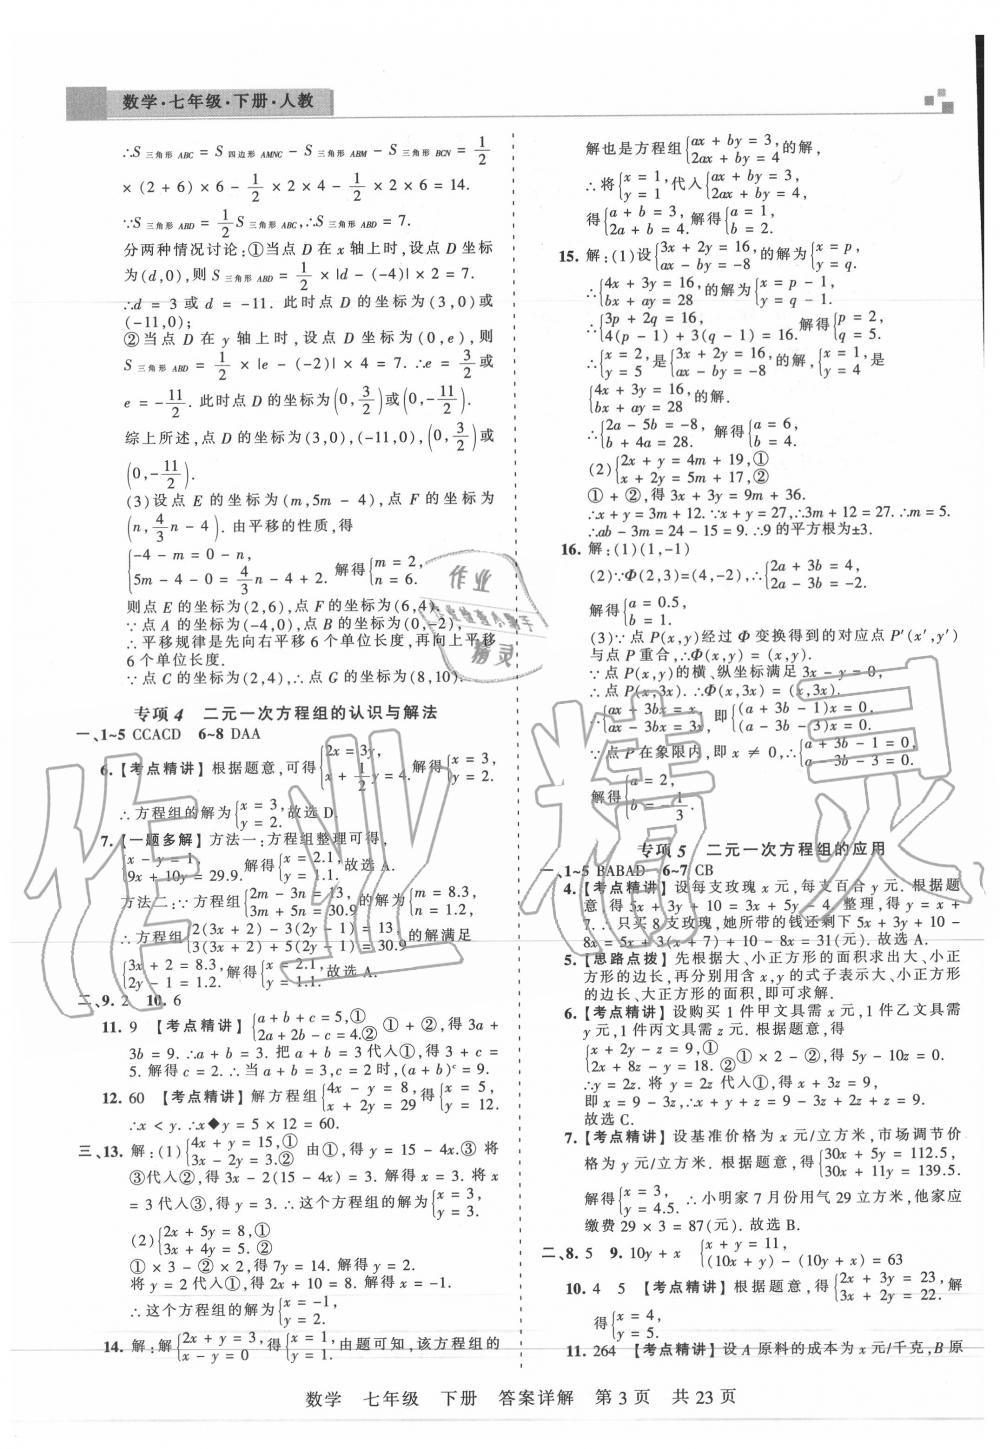 数学·七年级·下册·人教
∴S三角形ABC = S四边形AMNC − S三角形ABM − S三角形BCN = 1/2
× (2 + 6) × 6 − 1/2 × 2 × 4 − 1/2 × 2 × 6 = 14.
∵S三角形ABD = 1/2 S三角形ABC, ∴S三角形ABD = 7.
分两种情况讨论:①当点 D 在 x 轴上时,设点 D 坐标
为(d,0),则 S三角形ABD = 1/2 × |d − (−4)| × 2 = 7.
∴d = 3 或 d = −11. 此时点 D 的坐标为(3,0)或
(−11,0);
②当点 D 在 y 轴上时,设点 D 坐标为(0,e),则
S三角形ABD = 1/2 × |e − (−2)| × 4 = 7. ∴e = 3/2 或
e = −11/2. 此时点 D 的坐标为(0, 3/2)或(0, −11/2).
综上所述,点 D 的坐标为(3,0),(−11,0),(0, 3/2)或
(0, −11/2).
(3)设点 E 的坐标为(m,5m − 4),点 F 的坐标为
(n, 4/3 n − 4). 由平移的性质,得
{−4 − m = 0 − n, 5m − 4 − 0 = 4/3 n − 4 − (−2). 解得{m = 2, n = 6.
则点 E 的坐标为(2,6),点 F 的坐标为(6,4).
∵点 A 的坐标为(−4,0),点 B 的坐标为(0,−2),
∴平移规律是先向右平移 6 个单位长度,再向上平移
6 个单位长度.
∵点 C 的坐标为(2,4),∴点 G 的坐标为(8,10).
专项 4 二元一次方程组的认识与解法
一、1~5 CCACD 6~8 DAA
6.【考点精讲】根据题意,可得{2x = 3y, x + 1/2 y = 4. 解得{x = 3, y = 2.
∴方程组的解为{x = 3, y = 2. 故选 D.
7.【一题多解】方法一:方程组整理可得,
{x − y = 1, 9x + 10y = 29.9. 解得{x = 2.1, y = 1.1. 故选 A.
方法二:∵方程组{2m − 3n = 13, 3m + 5n = 30.9 的解为{m = 8.3, n = 1.2,
∴方程组{2(3x + 2) − 3(2y − 1) = 13, 3(3x + 2) + 5(2y − 1) = 30.9 的解满足
{3x + 2 = 8.3, 2y − 1 = 1.2. 解得{x = 2.1, y = 1.1. 故选 A.
二、9. 2 10. 6
11. 9 【考点精讲】{a + b + c = 5,① 2a + 2b − c = 4.② ① + ②,得 3a +
3b = 9. ∴a + b = 3. 把 a + b = 3 代入①,得 3 + c =
5. 解得 c = 2. ∴当 a + b = 3,c = 2 时,(a + b)^c = 9.
12. 60 【考点精讲】解方程组{4x − y = 8, x + 2y = 29 得{x = 5, y = 12.
∴x < y. ∴x◆y = 5 × 12 = 60.
三、13. 解:(1){4x + y = 15,① 3x − 2y = 3.② 由①,得 y = 15 − 4x.③ 将
③代入②,得 3x − 2(15 − 4x) = 3. 解得 x = 3. 将 x
= 3 代入③,得 y = 3. ∴这个方程组的解为{x = 3, y = 3.
(2){2x + 5y = 8,① 3x + 4y = 5.②
① × 3 − ② × 2,得 7y = 14. 解得 y = 2.
将 y = 2 代入①,得 2x + 10 = 8. 解得 x = −1.
∴这个方程组的解为{x = −1, y = 2.
14. 解:解{2x + y = 3, x − y = 0 得{x = 1, y = 1. 由题可知,该方程组的
解也是方程组{ax + by = 3, 2ax + by = 4 的解,
∴将{x = 1, y = 1 代入{ax + by = 3, 2ax + by = 4,
得{a + b = 3, 2a + b = 4. 解得{a = 1, b = 2.
15. 解:(1)设{3x + 2y = 16, ax − by = −8 的解为{x = p, y = q.
∴{4x + 3y = 16, bx + ay = 28 的解为{x = p − 1, y = q − 1.
∴{3p + 2q = 16, 4(p − 1) + 3(q − 1) = 16. 解得{p = 2, q = 5.
∴{x = 2, y = 5 是{3x + 2y = 16, ax − by = −8 的解,{x = 1, y = 4 是
{4x + 3y = 16, bx + ay = 28 的解.
∴{2a − 5b = −8, b + 4a = 28. 解得{a = 6, b = 4.
(2){2x + y = 4m + 19,① x + 2y = 5m + 17,②
① + ②,得 3x + 3y = 9m + 36.
∴x + y = 3m + 12. ∵x + y = 27,∴3m + 12 = 27. ∴m = 5.
∴ab − 3m = 24 − 15 = 9. ∴9 的平方根为±3.
16. 解:(1)(1,−1)
(2)∵Φ(2,3) = (4,−2),∴{2a + 3b = 4, 2a − 3b = −2.
解得{a = 0.5, b = 1.
(3)∵点 P(x,y)经过 Φ 变换得到的对应点 P′(x′,y′)
与点 P 重合,∴Φ(x,y) = (x,y).
∵点 P(x,y)的横、纵坐标满足 3x − y = 0,
∴点 P(x,3x). ∴Φ(x,3x) = (x,3x).
∴{ax + 3bx = x, ax − 3bx = 3x. 即{(a + 3b − 1)x = 0, (a − 3b − 3)x = 0.
∵点 P 在象限内,即 x ≠ 0,∴{a + 3b − 1 = 0, a − 3b − 3 = 0.
解得{a = 2, b = −1/3.
专项 5 二元一次方程组的应用
一、1~5 BABAD 6~7 CB
4.【考点精讲】设每支玫瑰 x 元,每支百合 y 元. 根据题
意,得 5x + 3y + 10 = 3x + 5y − 4. 整理,得 y = x +
7. ∴只买 8 支玫瑰,她所带的钱还剩下 5x + 3y + 10 −
8x = 5x + 3(x + 7) + 10 − 8x = 31(元). 故选 A.
5.【思路点拨】先根据大、小正方形的面积求出大、小正
方形的边长,再分别用含 x,y 的式子表示大、小正方形
的边长、大正方形的面积,即可求解.
6.【考点精讲】设购买 1 件甲文具需 x 元,1 件乙文具需
y 元,1 件丙文具需 z 元. 根据题意,得
{x + 2y − z = 9,① 2x + 8y − z = 18.② ① × 2 − ②,得 5y − 10z = 0.
∴y = 2z. 将 y = 2z 代入①,得 x + 4z − z = 9,
即 x = 9 − 3z. ∴x + y + z = 9 − 3z + 2z + z = 9.
故选 C.
7.【考点精讲】设基准价格为 x 元/立方米,市场调节价
格为 y 元/立方米. 根据题意,得{30x + 5y = 112.5, 30x + 11y = 139.5.
解得{x = 3, y = 4.5. ∴小明家 7 月份用气 29 立方米,他家应
缴费 29 × 3 = 87(元). 故选 B.
二、8. 5 9. 10y + x {x + y = 11, (10x + y) − (10y + x) = 63
10. 4 5 【考点精讲】根据题意,得{2x + 3y = 23, 3x + 2y = 22. 解
得{x = 4, y = 5.
11. 264 【考点精讲】设 A 原料的成本为 x 元/千克,B 原
数学 七年级 下册 答案详解 第 3 页 共 23 页
作业精灵